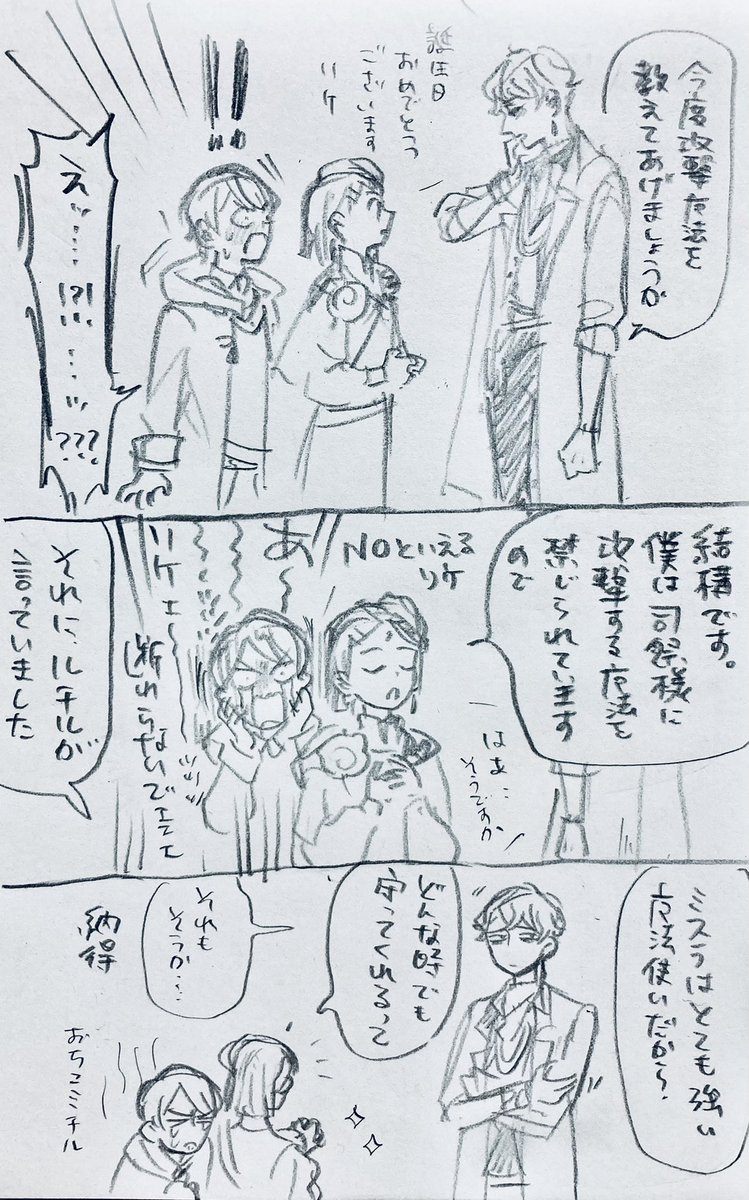 今度攻撃方法を
教えてあげましょうか
誕生日
おめでとう
ございます
リケ
!!
えッ……!?!……ッ???
結構です。
僕は司祭様に
攻撃する方法を
禁じられています
ので
NOといえる
リケ
はあ…
そうですか
あ゛
リケェ〜
断わらないでェェェ
それに、ルチルが
言っていました
ミスラはとても強い
魔法使いだから、
どんな時でも
守ってくれるって
それも
そうか…
納得
おちこミチル